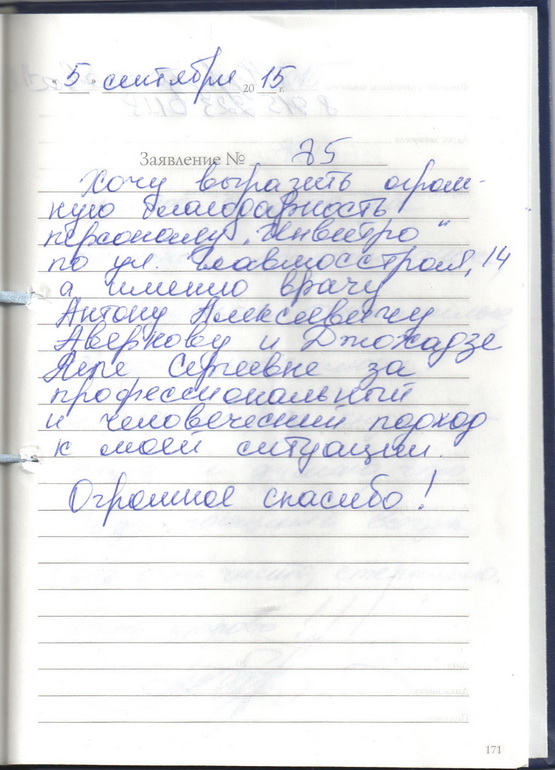 5 сентября 2015 г.
Заявление № 75
Хочу выразить огром-
ную благодарность
персоналу „Инвитро"
по ул. Главмосстроя, 14
а именно врачу
Антону Алексеевичу
Аверкову и Джохадзе
Лере Сергеевне за
профессиональный
и человеческий подход
к моей ситуации.
Огромное спасибо!
171